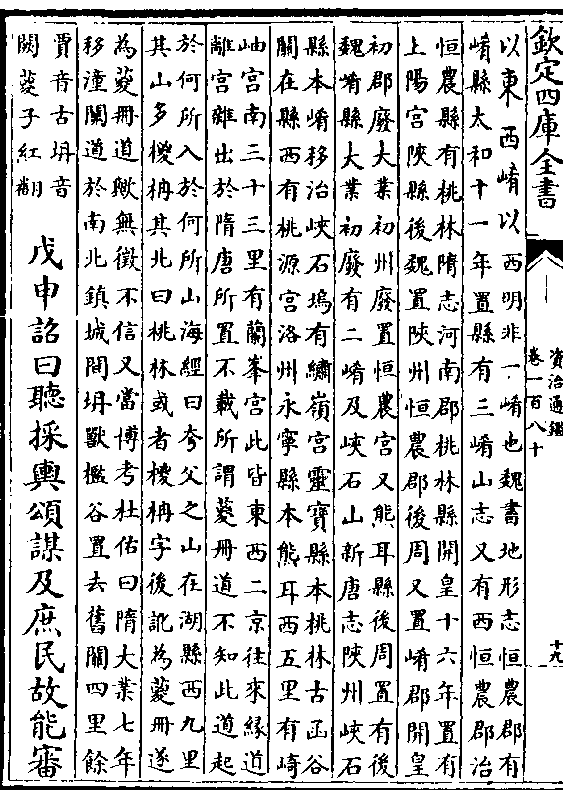 欽定四庫全書
資治通鑑
卷一百八十
十九
以東西崤以西明非一崤也魏書地形志恒農郡有
崤縣太和十一年置縣有三崤山志又有西恒農郡治
恒農縣有桃林隋志河南郡桃林縣開皇十六年置有
上陽宮陝縣後魏置陝州恒農郡後周又置崤郡開皇
初郡廢大業初州廢置恒農宮又熊耳縣後周置有後
魏崤縣大業初廢有二崤及峽石山新唐志陝州峽石
縣本崤移治峽石塢有繡嶺宮靈寶縣本桃林古函谷
關在縣西有桃源宮洛州永寧縣本熊耳西五里有崎
岫宮南三十三里有蘭峯宮此皆東西二京往來縁道
離宮雜出於隋唐所置不載所謂葼冊道不知此道起
於何所入於何所山海經曰夸父之山在湖縣西九里
其山多椶枏其北曰桃林或者椶枏字後訛為葼冊遂
為葼冊道歟無徴不信又當博考杜佑曰隋大業七年
移潼關道於南北鎮城間坍獸檻谷置去舊關四里餘
賈音古坍音
闕葼子紅翻
戊申詔曰聽採輿頌謀及庶民故能審